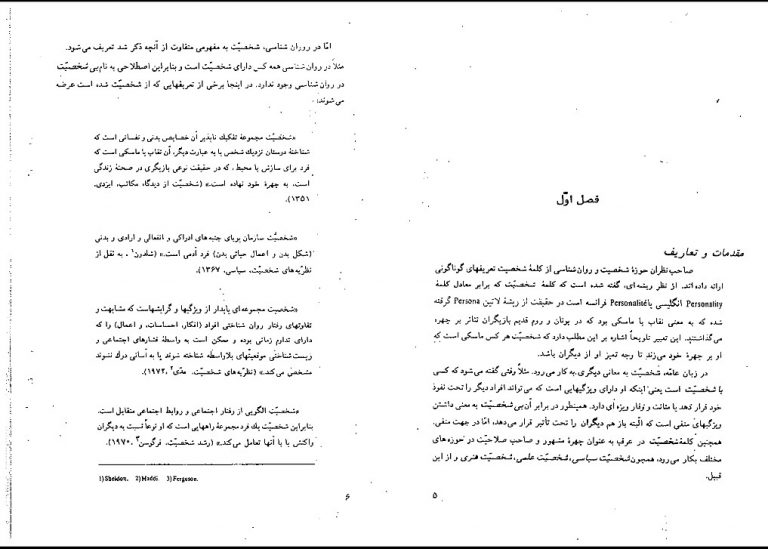 فصل اوّل
مقدمات و تعاریف
صاحب‌نظران حوزهٔ شخصیت و روان‌شناسی از کلمهٔ شخصیت تعریفهای گوناگونی
ارائه داده‌اند. از نظر ریشه‌ای، گفته شده است که کلمهٔ شخصیّت که برابر معادل کلمهٔ
Personality انگلیسی یا Personalité فرانسه است در حقیقت از ریشهٔ لاتین Persona گرفته
شده که به معنی نقاب یا ماسکی بود که در یونان و روم قدیم بازیگران تئاتر بر چهره
می‌گذاشتند. این تعبیر تلویحاً اشاره بر این مطلب دارد که شخصیّت هر کس ماسکی است که
او بر چهرهٔ خود می‌زند تا وجه تمیز او از دیگران باشد.
در زبان عامّه، شخصیّت به معانی دیگری به کار می‌رود. مثلاً وقتی گفته می‌شود که کسی
با شخصیّت است یعنی اینکه او دارای ویژگیهایی است که می‌تواند افراد دیگر را تحت نفوذ
خود قرار دهد یا متانت و وقار ویژه‌ای دارد. همینطور در برابر آن بی‌شخصیّت به معنی داشتن
ویژگیهای منفی است که البته باز هم دیگران را تحت تأثیر قرار می‌دهد، امّا در جهت منفی.
همچنین کلمهٔ شخصیّت در عرف به عنوان چهرهٔ مشهور و صاحب صلاحیّت در حوزه‌های
مختلف بکار می‌رود، همچون شخصیّت سیاسی، شخصیّت علمی، شخصیّت هنری و از این
قبیل.
۵
امّا در روان شناسی، شخصیّت به مفهومی متفاوت از آنچه ذکر شد تعریف می‌شود.
مثلاً در روان‌شناسی همه کس دارای شخصیّت است و بنابراین اصطلاحی به نام بی‌شخصیّت
در روان‌شناسی وجود ندارد. در اینجا برخی از تعریفهایی که از شخصیّت شده است عرضه
می‌شوند:
«شخصیّت مجموعهٔ تفکیك ناپذیر آن خصایص بدنی و نفسانی است که
شناختهٔ دوستان نزدیك شخص یا به عبارت دیگر، آن نقاب یا ماسکی است که
فرد برای سازش با محیط، که در حقیقت نوعی بازیگری در صحنهٔ زندگی
است، به چهرهٔ خود نهاده است.» (شخصیّت از دیدگاه مکاتب، ایزدی،
۱۳۵۱).
«شخصیّت سازمان پویای جنبه‌های ادراکی و انفعالی و ارادی و بدنی
(شکل بدن و اعمال حیاتی بدن) فرد آدمی است.» (شلدون۱، به نقل از
نظریّه‌های شخصیّت، سیاسی، ۱۳۶۷).
«شخصیت مجموعه‌ای پایدار از ویژگیها و گرایشهاست که مشابهت و
تفاوتهای رفتار روان شناختی افراد (افکار، احساسات، و اعمال) را که
دارای تداوم زمانی بوده و ممکن است به واسطهٔ فشارهای اجتماعی و
زیست‌شناختی موقعیتهای بلاواسطه شناخته شوند یا به آسانی درك نشوند
مشخص می‌کند.» (نظریّه‌های شخصیّت، مدّی۲، ۱۹۷۲).
«شخصیّت الگویی از رفتار اجتماعی و روابط اجتماعی متقابل است.
بنابراین شخصیّت یك فرد مجموعهٔ راههایی است که او نوعاً نسبت به دیگران
واکنش یا با آنها تعامل می‌کند.» (رشد شخصیّت، فرگوسن۳، ۱۹۷۰).
1) Sheldon. 2) Maddi. 3) Ferguson.
۶